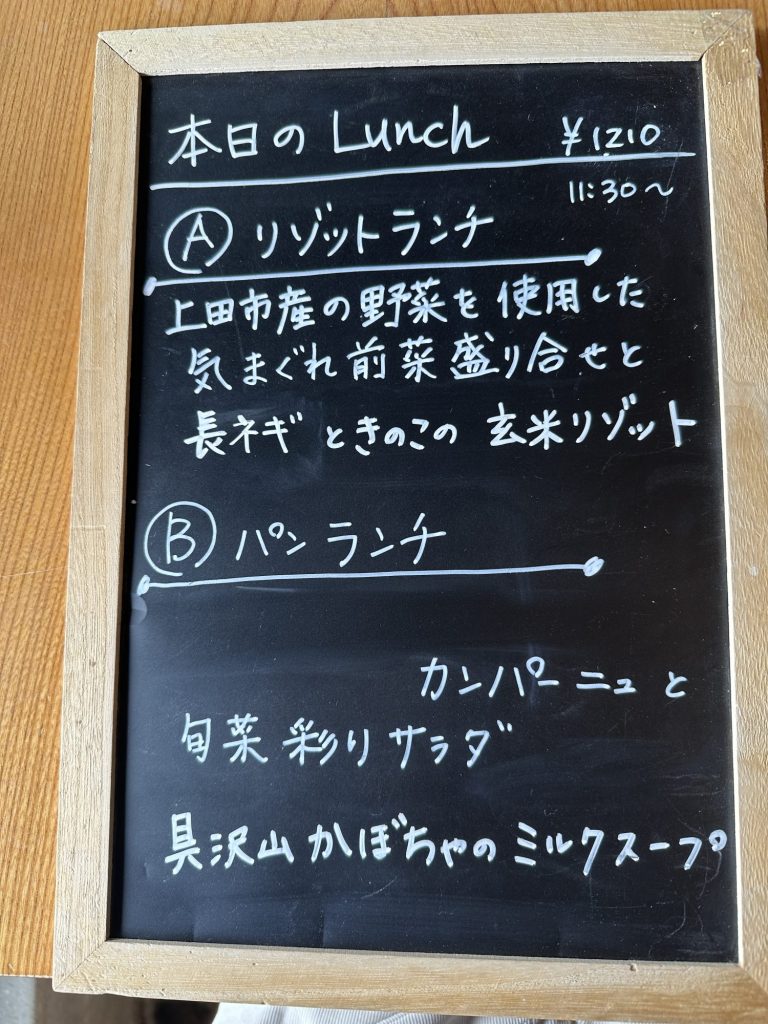 本日の Lunch ¥1210
11:30～
Ⓐ リゾットランチ
上田市産の野菜を使用した
気まぐれ前菜盛り合せと
長ネギときのこの 玄米リゾット
Ⓑ パンランチ
カンパーニュと
旬菜彩りサラダ
具沢山かぼちゃのミルクスープ